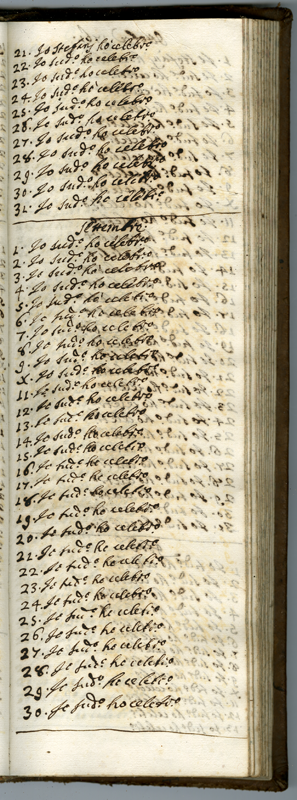 21. Io Stefinj ho celebr.º
22. Io sud.º ho celebr.º
23. Io sud.º ho celebr.º
24. Io sud.º ho celebr.º
25. Io sud.º ho celebr.º
26. Io sud.º ho celebr.º
27. Io sud.º ho celebr.º
28. Io sud.º ho celebr.º
29. Io sud.º ho celebr.º
30. Io sud.º ho celebr.º
31. Io sud.º ho celebr.º
Settembre
1. Io sud.º ho celebr.º
2. Io sud.º ho celebr.º
3. Io sud.º ho celebr.º
4. Io sud.º ho celebr.º
5. Io sud.º ho celebr.º
6. Io sud.º ho celebr.º
7. Io sud.º ho celebr.º
8. Io sud.º ho celebr.º
9. Io sud.º ho celebr.º
X. Io sud.º ho celebr.º
11. Io sud.º ho celebr.º
12. Io sud.º ho celebr.º
13. Io sud.º ho celebr.º
14. Io sud.º ho celebr.º
15. Io sud.º ho celebr.º
16. Io sud.º ho celebr.º
17. Io sud.º ho celebr.º
18. Io sud.º ho celebr.º
19. Io sud.º ho celebr.º
20. Io sud.º ho celebr.º
21. Io sud.º ho celebr.º
22. Io sud.º ho celebr.º
23. Io sud.º ho celebr.º
24. Io sud.º ho celebr.º
25. Io sud.º ho celebr.º
26. Io sud.º ho celebr.º
27. Io sud.º ho celebr.º
28. Io sud.º ho celebr.º
29. Io sud.º ho celebr.º
30. Io sud.º ho celebr.º